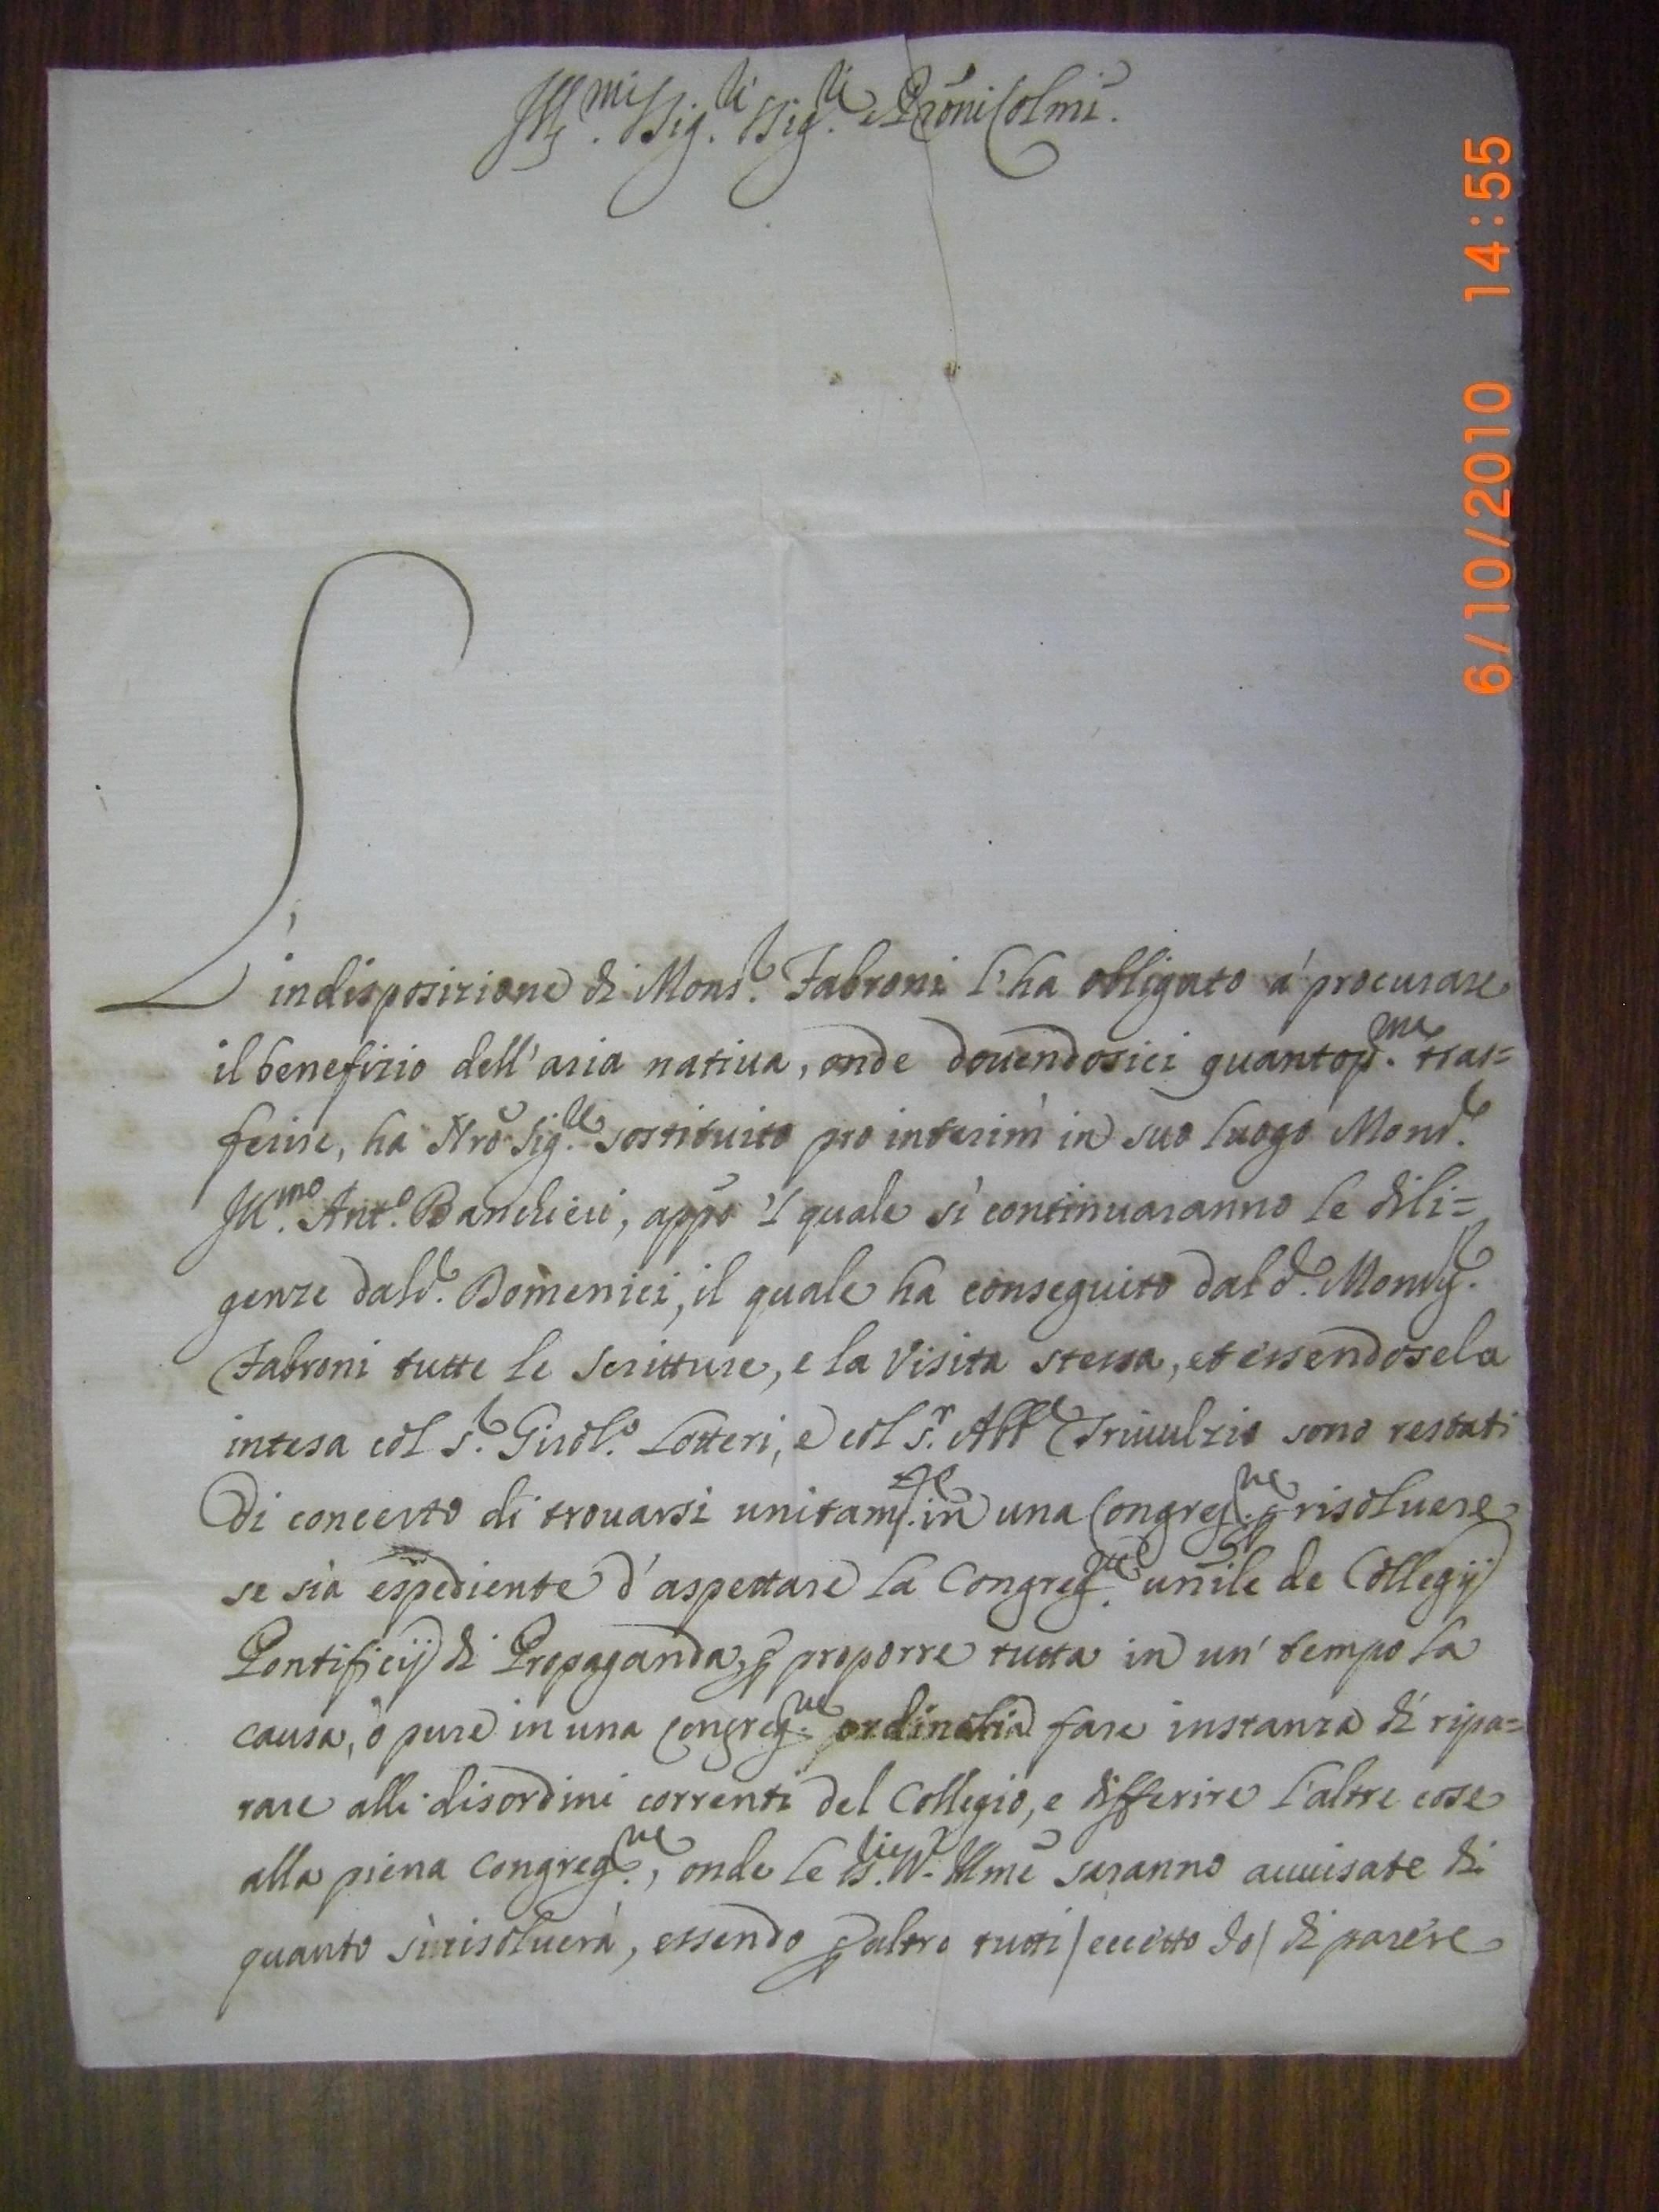 Ill.mi Sig.ri Sig.ri e Pr̃oni Colmĩ.
L'indisposizione di Mons.r Fabroni l'ha obligato á procurare
il benefizio dell'aria natiua, onde douendosici quantop.ma tras=
ferire, ha Nr̃o Sig.re sostituito pro interim in suo luogo Mons.r
Ill.mo Ant.o Banchieri, app̃o 'l quale si continuaranno le dili=
genze dal S.r Domenici, il quale ha conseguito dal d.o Monsig.r
Fabroni tutte le scritture, e la Visita stessa, et essendosela
intesa col S.r Girol.o Lotteri, e col S.r Abb.e Triuulzio sono restati
di concerto di trouarsi unitam.te in una Congreg.ne p risoluere
se sia espediente d'aspettare la Congreg.ne uñile de Collegij
Pontificij di Propaganda, p proporre tutta in un' tempo la
causa, ò pure in una Congreg.ne ordinaria fare instanza di ripa=
rare alli disordini correnti del Collegio, e differire l'altre cose
alla piena Congreg.ne, onde le SS.rie VV. Illmẽ saranno auuisate di
quanto si risoluerà, essendo p altro tutti / eccetto Io / di parere
6/10/2010 14:55